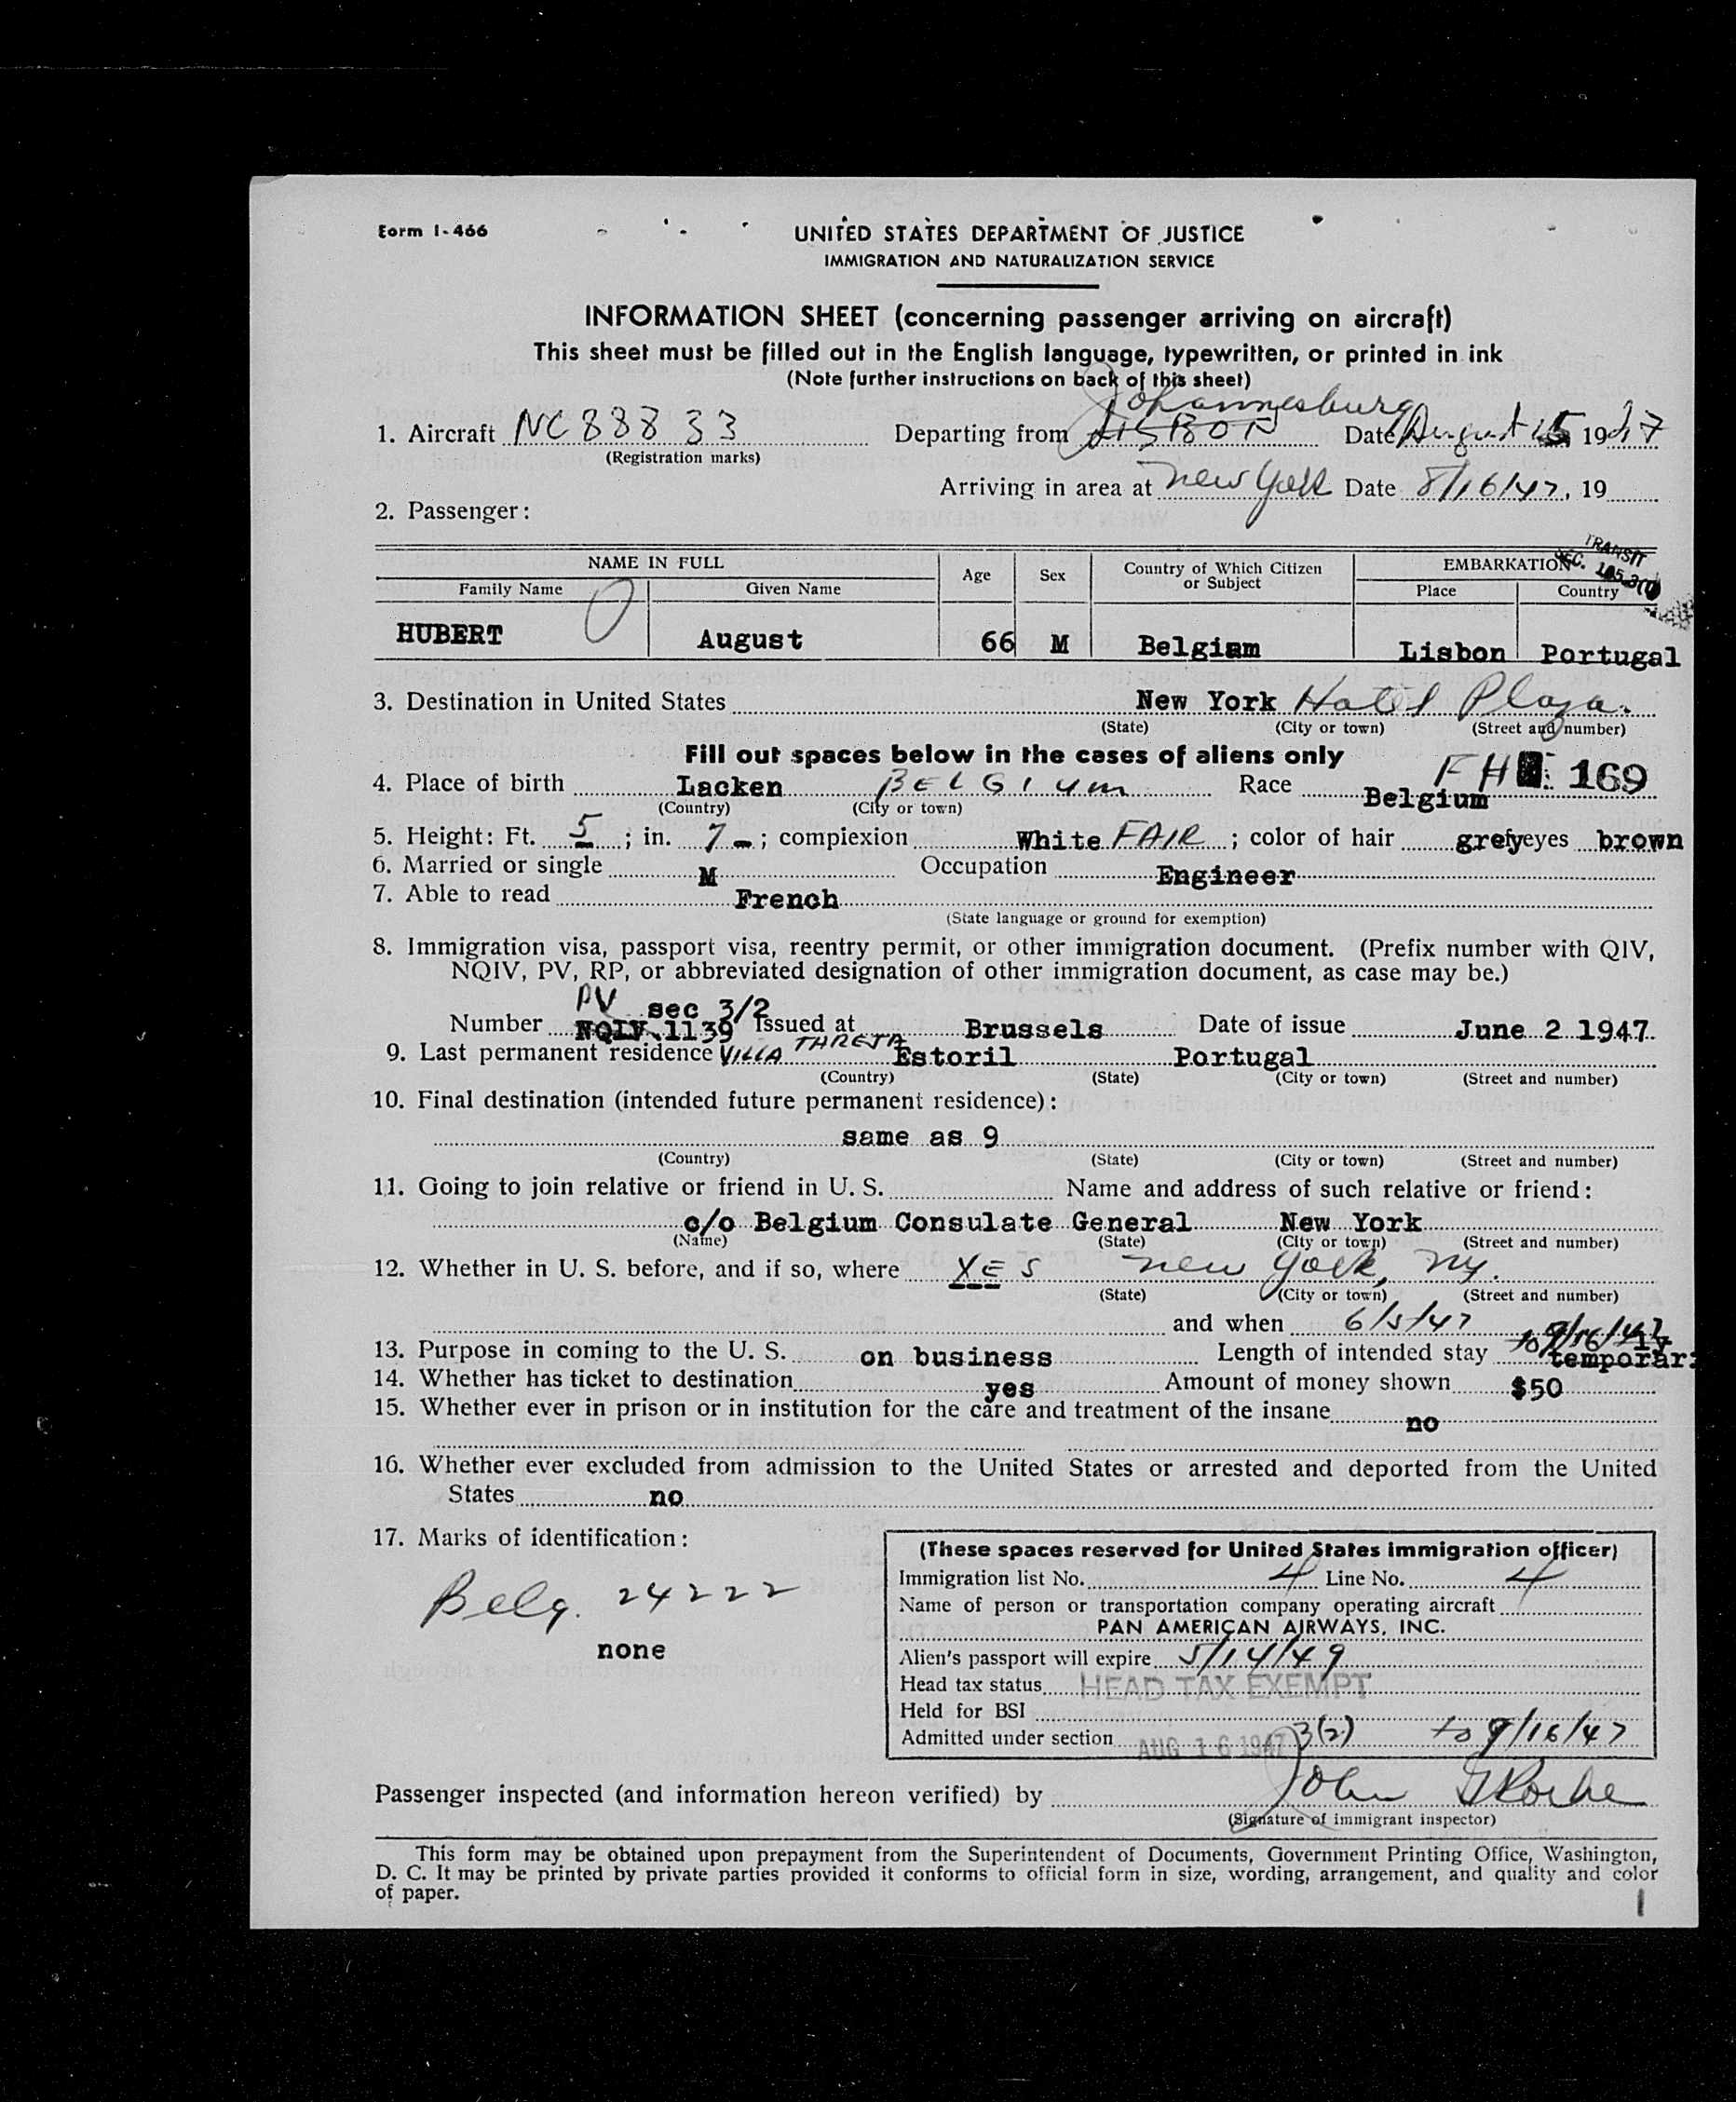 Form I-466
UNITED STATES DEPARTMENT OF JUSTICE
IMMIGRATION AND NATURALIZATION SERVICE
INFORMATION SHEET (concerning passenger arriving on aircraft)
This sheet must be filled out in the English language, typewritten, or printed in ink
(Note further instructions on back of this sheet)
Johannesburg
1. Aircraft NC 88833 Departing from LISBON Date August 15 1947
(Registration marks)
Arriving in area at New York Date 8/16/47, 19
2. Passenger:
TRANSIT
NAME IN FULL Age Sex Country of Which Citizen or Subject EMBARKATION SEC.
Family Name Given Name Place Country
HUBERT August 66 M Belgian Lisbon Portugal
3. Destination in United States New York Hotel Plaza.
(State) (City or town) (Street and number)
Fill out spaces below in the cases of aliens only
FH 169
4. Place of birth Lacken BELGIUM Race Belgium
(Country) (City or town)
5. Height: Ft. 5 ; in. 7 ; complexion White FAIR ; color of hair grey eyes brown
6. Married or single M Occupation Engineer
7. Able to read French
(State language or ground for exemption)
8. Immigration visa, passport visa, reentry permit, or other immigration document. (Prefix number with QIV,
NQIV, PV, RP, or abbreviated designation of other immigration document, as case may be.)
PV sec 3/2
Number NQIV 1139 Issued at Brussels Date of issue June 2 1947
9. Last permanent residence VILLA Estoril Portugal
(Country) (State) (City or town) (Street and number)
10. Final destination (intended future permanent residence):
same as 9
(Country) (State) (City or town) (Street and number)
11. Going to join relative or friend in U. S. Name and address of such relative or friend:
c/o Belgium Consulate General New York
(Name) (State) (City or town) (Street and number)
12. Whether in U. S. before, and if so, where YES New York, NY.
(State) (City or town) (Street and number)
and when 6/5/47
to 9/16/47
13. Purpose in coming to the U. S. on business Length of intended stay temporari
14. Whether has ticket to destination yes Amount of money shown $50
15. Whether ever in prison or in institution for the care and treatment of the insane no
16. Whether ever excluded from admission to the United States or arrested and deported from the United
States no
17. Marks of identification:
Belg. 24222
none
(These spaces reserved for United States immigration officer)
Immigration list No. 4 Line No. 4
Name of person or transportation company operating aircraft
PAN AMERICAN AIRWAYS, INC.
Alien's passport will expire 5/14/49
Head tax status HEAD TAX EXEMPT
Held for BSI
Admitted under section AUG 16 1947 3(2) to 9/16/47
Passenger inspected (and information hereon verified) by John
(Signature of immigrant inspector)
This form may be obtained upon prepayment from the Superintendent of Documents, Government Printing Office, Washington,
D. C. It may be printed by private parties provided it conforms to official form in size, wording, arrangement, and quality and color
of paper.